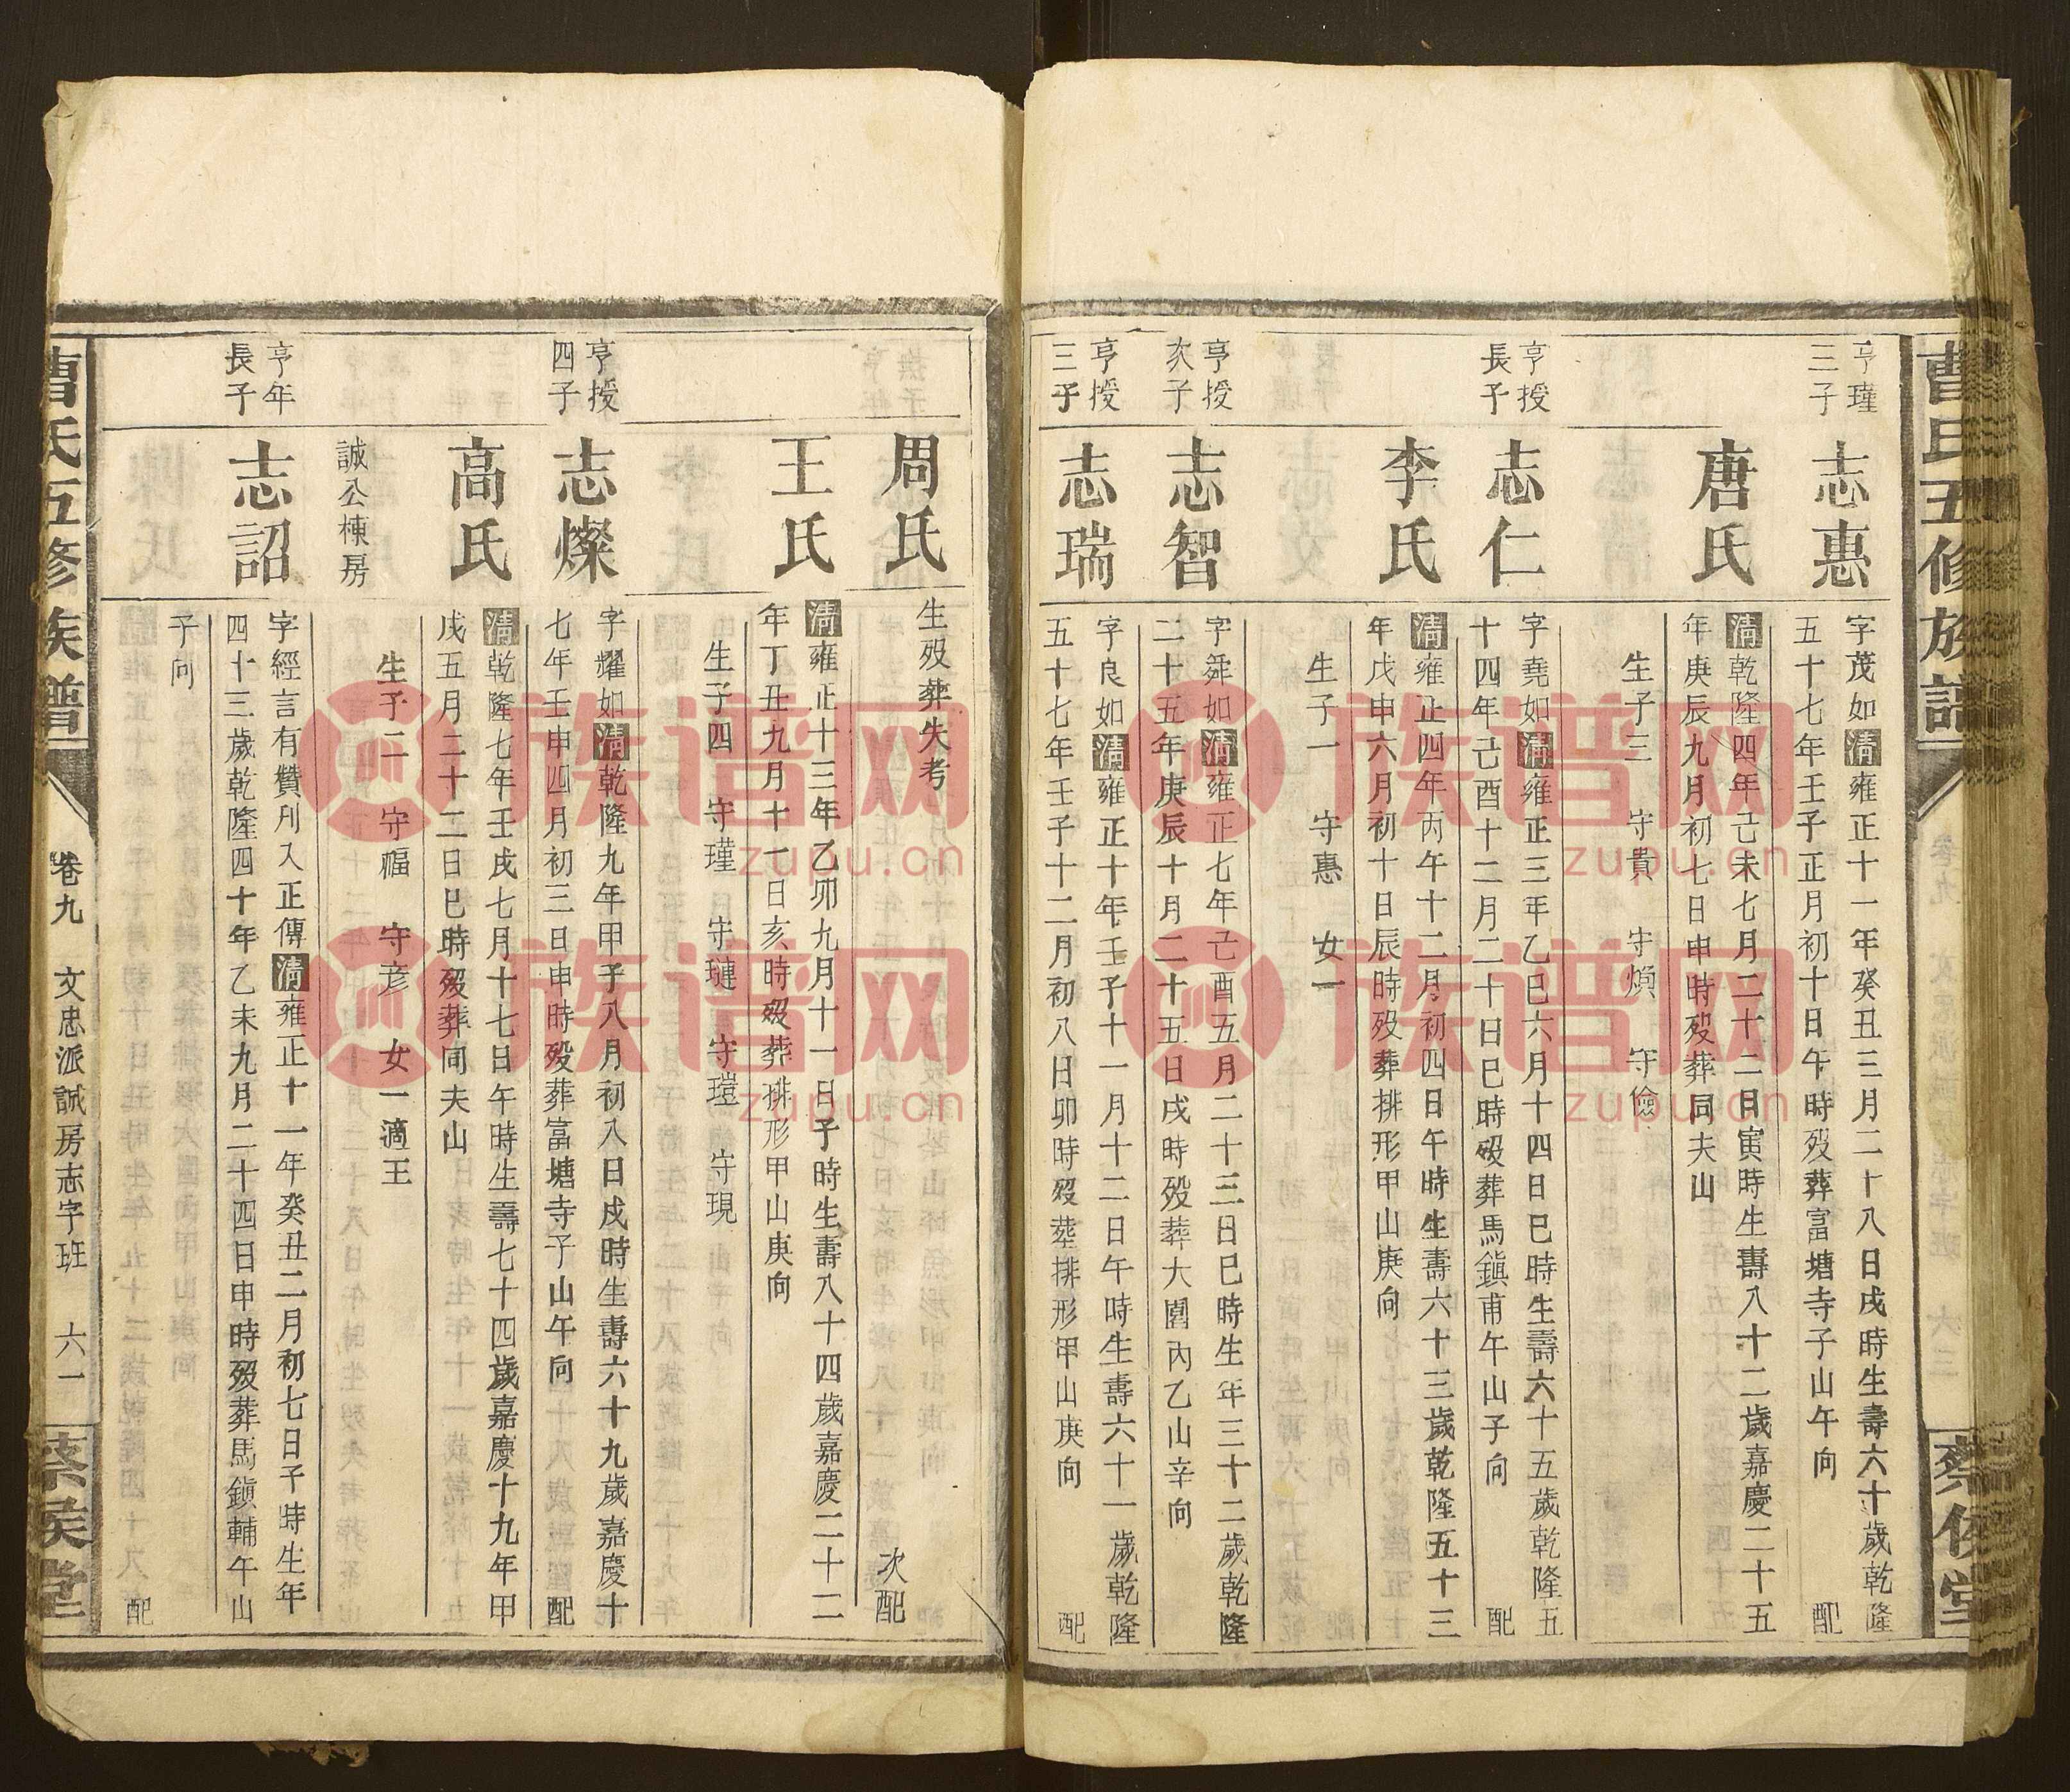 曹氏五修族譜
蔡侯堂
亨瑾
三子
志惠
字茂如清雍正十一年癸丑三月二十八日戌時生壽六十歲乾隆
五十七年壬子正月初十日午時殁葬富塘寺子山午向 配
唐氏
清乾隆四年己未七月二十二日寅時生壽八十二歲嘉慶二十五
年庚辰九月初七日申時殁葬同夫山
生子三 守貴 守煩 守儉
亨授
長子
志仁
字堯如清雍正三年乙巳六月十四日巳時生壽六十五歲乾隆五
十四年己酉十二月二十日巳時殁葬馬鎭甫午山子向 配
李氏
清雍正四年丙午十二月初四日午時生壽六十三歲乾隆五十三
年戊申六月初十日辰時殁葬排形甲山庚向
生子一 守惠 女一
亨授
次子
志智
字舜如清雍正七年己酉五月二十三日巳時生年三十二歲乾隆
二十五年庚辰十月二十五日戌時殁葬大圍內乙山辛向
亨授
三子
志瑞
字良如清雍正十年壬子十一月十二日午時生壽六十一歲乾隆
五十七年壬子十二月初八日卯時殁葬排形甲山庚向 配
周氏
生殁葬失考
次配
王氏
清雍正十三年乙卯九月十一日子時生壽八十四歲嘉慶二十二
年丁丑九月十一日亥時殁葬排形甲山庚向
生子四 守瑾 守璉 守瑄 守現
亨授
四子
志燦
字耀如清乾隆九年甲子八月初八日戌時生壽六十九歲嘉慶十
七年壬申四月初三日申時殁葬富塘寺子山午向 配
高氏
清乾隆七年壬戌七月十七日午時生壽七十四歲嘉慶十九年甲
戌五月二十二日巳時殁葬同夫山
生子二 守福 守彦 女一適王
誠公棟房
亨年
長子
志詔
字經言有贊刋入正傳清雍正十一年癸丑二月初七日子時生年
四十三歲乾隆四十年乙未九月二十四日申時殁葬馬鎭輔午山
子向
配
曹氏五修族譜
卷九 文忠派誠房志字班 六一
蔡侯堂
族谱网
zupu.cn
族谱网
zupu.cn
族谱网
zupu.cn
族谱网
zupu.cn